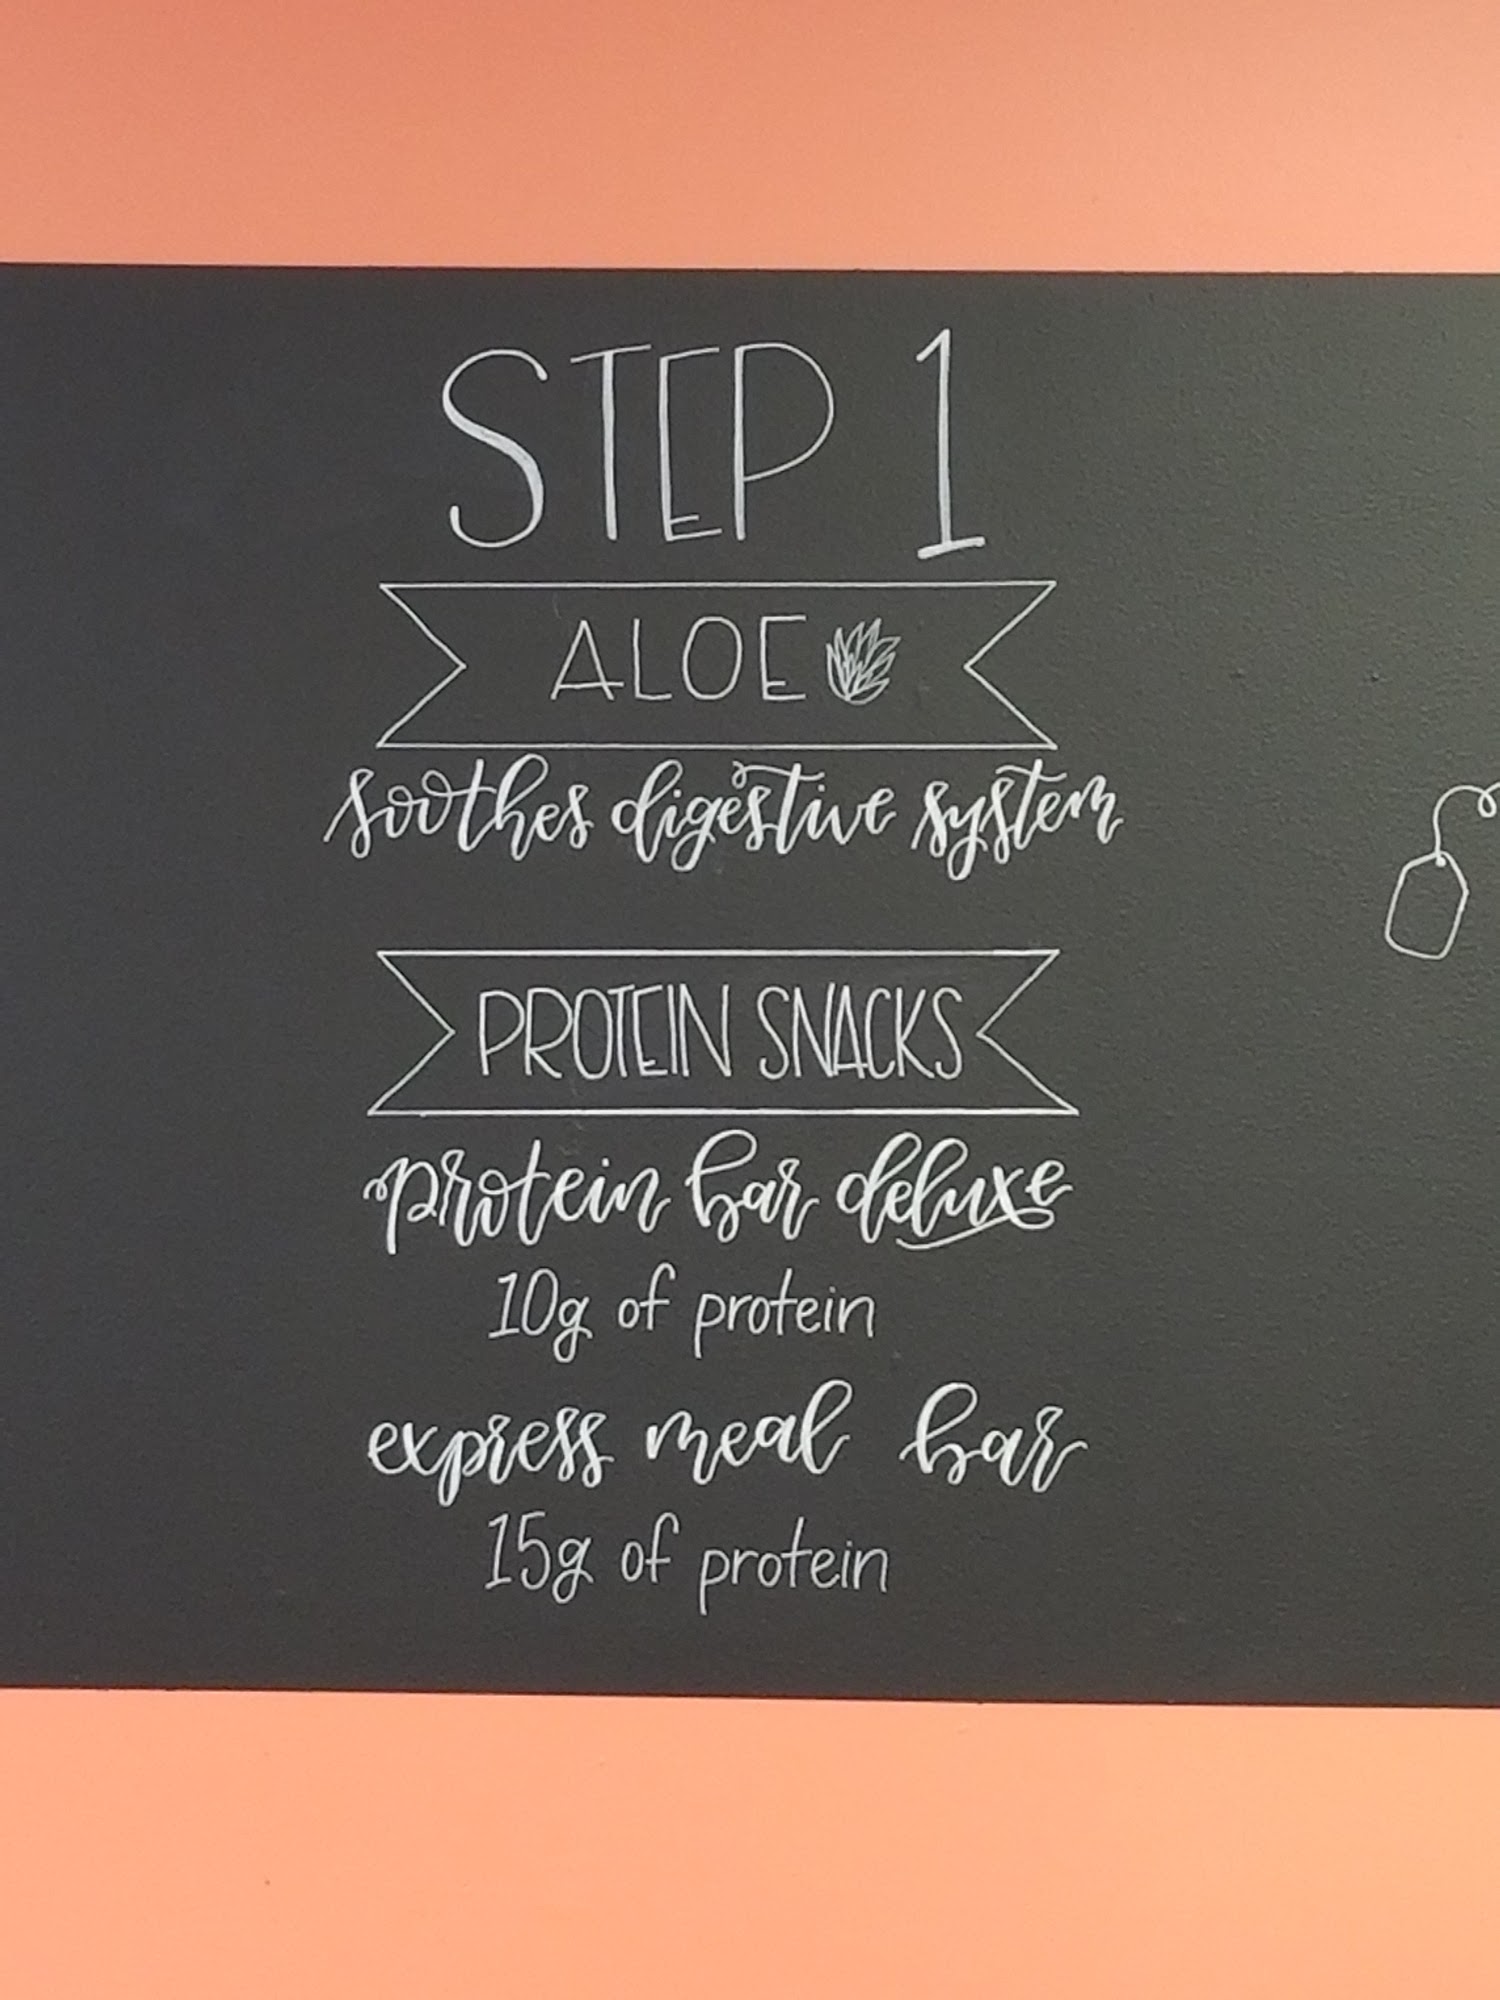 STEP 1
ALOE
soothes digestive system
PROTEIN SNACKS
protein bar deluxe
10g of protein
express meal bar
15g of protein